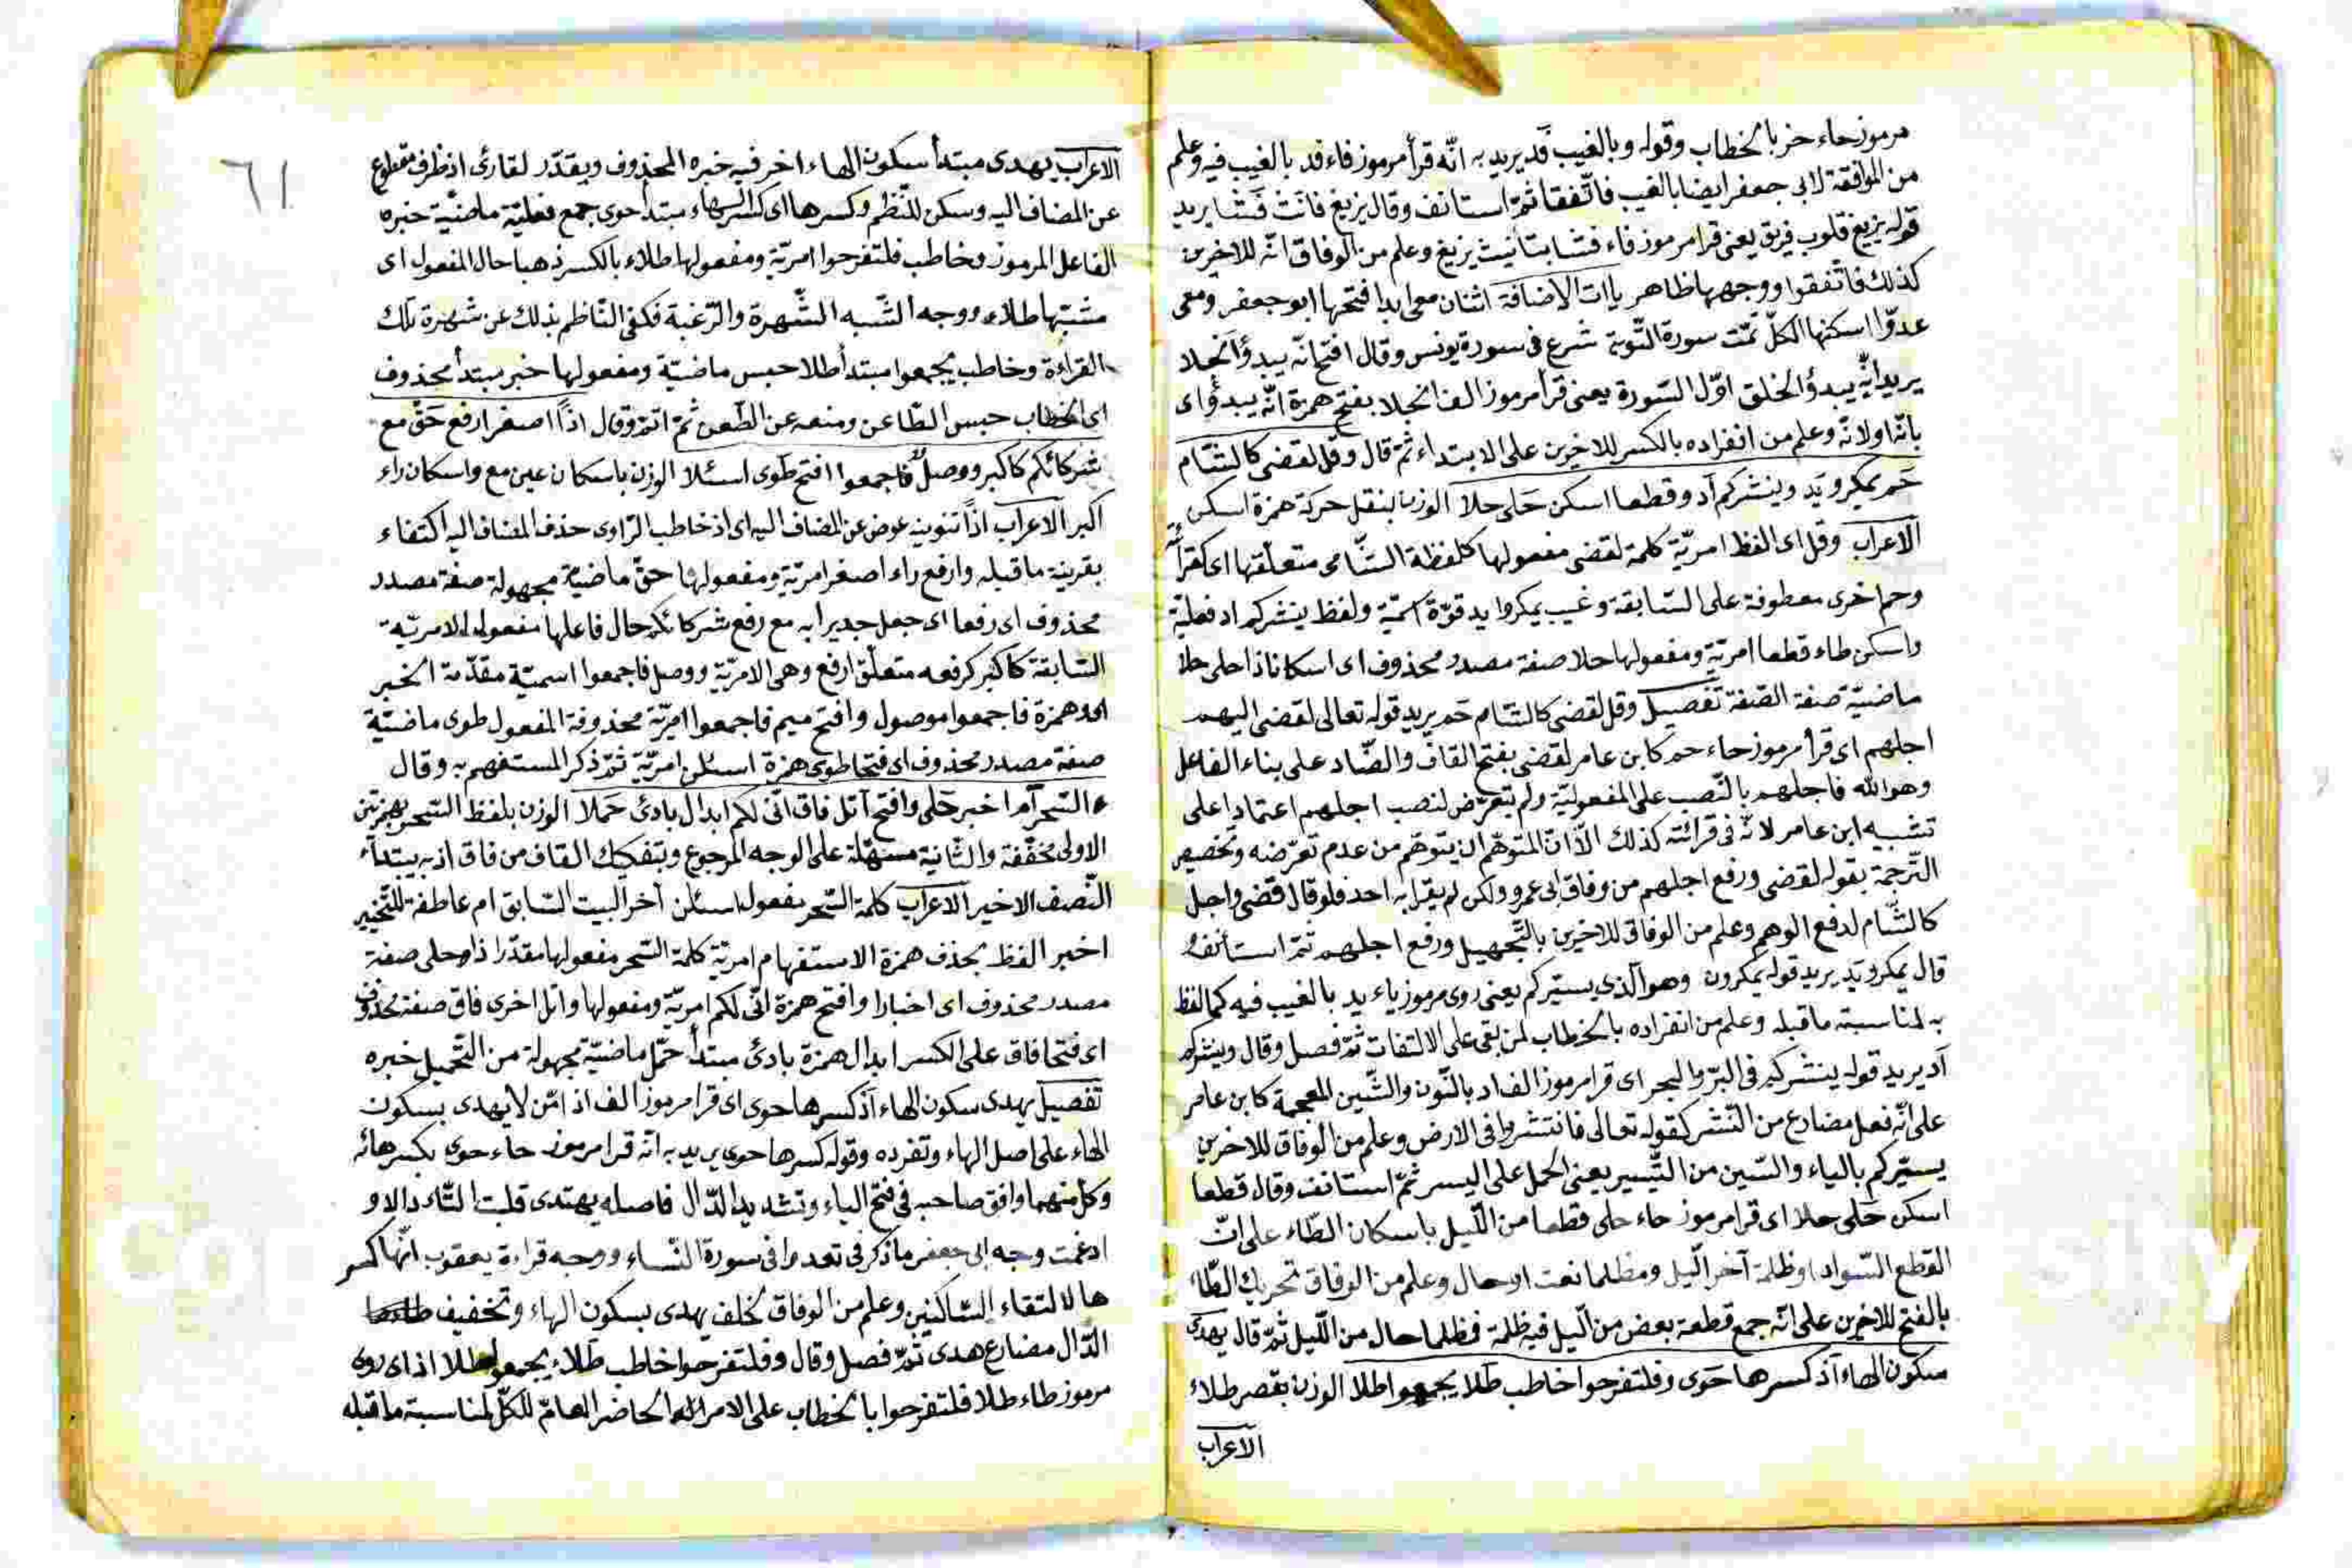 مرموز حاء حز بالخطاب وقوله وبالغيب فد يريد به انّه قرأ مرموز فاء فد بالغيب فيه وعلم
من الموافقة لابى جعفر ايضا بالغيب فاتّفقا ثمّ استانف وقال يزيغ فانث فشا يريد
قوله يزيغ قلوب فريق يعنى قرا مرموز فاء فشا بتأنيث يزيغ وعلم من الوفاق انّه للاخرين
كذلك فاتّفقوا ووجهها ظاهر ياات الاضافة اثنان معى ابدا فتحها ابو جعفر ومعى
عدوّا اسكنها الكلّ تمّت سورة التّوبة شرع فى سورة يونس وقال افتح انّه يبدؤا انجلا
يريد انّه يبدؤ الخلق اوّل السّورة يعنى قرأ مرموز الف انجلا بفتح همزة انّه يبدؤ اى
بانّه اولانّه وعلم من انفراده بالكسر للاخرين على الابتداء ثمّ قال وقل لقضى كالشّام
حم يمكرو يد وينشركم اد وقطعا اسكن حلى حلا الوزن بنقل حركة همزة اسكن
الاعراب وقل اى الفظ امريّة كلمة لقضى مفعولها كلفظة الشّامى متعلّقها اى كقرأته
وحم اخرى معطوفة على السّابقة وغيب يمكروا يد قوّة اسميّة ولفظ ينشركم اد فعليّة
واسكن طاء قطعا امريّة ومفعولها حلا صفة مصدر محذوف اى اسكانا ذا حلى حلا
ماضيّة صفة الصّفة تفصيل وقل لقضى كالشّام حم يريد قوله تعالى لقضى اليهم
اجلهم اى قرأ مرموز حاء حم كابن عامر لقضى بفتح القاف والضّاد على بناء الفاعل
وهو اللّه فاجلهم بالنّصب على المفعوليّة ولم يتعرّض لنصب اجلهم اعتمادا على
تشبيه ابن عامر لانّه فى قرائته كذلك الّا انّ المتوهّم ان يتوهّم من عدم تعرّضه وتخصيص
التّرجمة بقوله لقضى ورفع اجلهم من وفاق ابى عمرو ولكن لم يقرا به احد فلو قال قضى واجل
كالشّام لدفع الوهم وعلم من الوفاق للاخرين بالتّجهيل ورفع اجلهم ثمّ استأنف و
قال يمكرو يد يريد قوله يمكرون وهو الّذى يسيّركم يعنى روى مرموز ياء يد بالغيب فيه كما لفظ
به لمناسبة ما قبله وعلم من انفراده بالخطاب لمن بقى على الالتفات ثمّ فصل وقال وينشركم
اد يريد قوله ينشركم فى البرّ والبحر اى قرا مرموز الف اد بالنّون والشّين المعجمة كابن عامر
على انّه فعل مضارع من النّشر كقوله تعالى فانتشروا فى الارض وعلم من الوفاق للاخرين
يسيّركم بالياء والسّين من التّيسير يعنى الحمل على اليسر ثمّ استانف وقال قطعا
اسكن حلى حلا اى قرا مرموز حاء حلى قطعا من اللّيل باسكان الطّاء على انّ
القطع السّواد او ظلمة آخر اللّيل ومظلما نعت او حال وعلم من الوفاق تحريك الطّاء
بالفتح للاخرين على انّه جمع قطعة بعض من الّيل فيه ظلمة فظلما حال من اللّيل ثمّ قال يهدى
سكون الهاء اذ كسرها حوى وفلتفرحوا خاطب طلا يجمعوا طلا الوزن بقصر طلاء
الاعراب
٦١
الاعراب يهدى مبتدأ سكون الهاء اخر فيه خبره المحذوف ويقدّر لقارئ اذ ظرف مقطوع
عن المضاف اليه وسكن للنّظم وكسرها اى كسر الهاء مبتدأ حوى جمع فعليّة ماضيّة خبره
الفاعل المرموز وخاطب فلتفرحوا امريّة ومفعولها طلاء بالكسر ذهبا حال المفعول اى
مشبّها طلاء ووجه الشّبه الشّهرة والرّغبة فكفى النّاظم بذلك عن شهرة تلك
القراءة وخاطب يجمعوا مبتدأ طلا حبس ماضيّة ومفعولها خبر مبتدأ محذوف
اى الخطاب حبس الطّاعن ومنعه عن الطّعن ثمّ اتمّ وقال اذًا اصغر ارفع حقّ مع
شركائكم كاكبر ووصل فاجمعوا افتح طوى اسئلا الوزن باسكان عين مع واسكان راء
اكبر الاعراب اذًا تنوينه عوض عن المضاف اليه اى اذ خاطب الرّاوى حذف المضاف اليه اكتفاء
بقرينة ما قبله وارفع راء اصغر امريّة ومفعولها حقّ ماضيّة مجهولة صفة مصدر
محذوف اى رفعا اى جعل جديرا به مع رفع شركائكم حال فاعلها مفعوله الامريّة
السّابقة كاكبر كرفعه متعلّق ارفع وهى الامريّة ووصل فاجمعوا اسميّة مقدّمة الخبر
اى همزة فاجمعوا موصول وافتح ميم فاجمعوا امريّة محذوفة المفعول طوى ماضيّة
صفة مصدر محذوف اى فتحا طوى همزة اسئلن امريّة ثمّ ذكر المستفهم به وقال
ءالسّحر ام اخبر حلى وافتح اتل فاق انّى لكم ابدال بادئ حملا الوزن بلفظ السّحر بهمزتين
الاولى مخفّفة والثّانية مسهّلة على الوجه المرجوع وبتفكيك القاف من فاق اذ به يبتدأ
النّصف الاخير الاعراب كلمة السّحر مفعول اسئلن آخر البيت السّابق ام عاطفة للتّخيير
اخبر الفظ بحذف همزة الاستفهام امريّة كلمة السّحر مفعولها مقدّرا ذا حلى صفة
مصدر محذوف اى اخبارا وافتح همزة انّى لكم امريّة ومفعولها واتل اخرى فاق صفة محذوف
اى فتحا فاق على الكسر ابدال همزة بادئ مبتدأ حمّل ماضيّة مجهولة من التّحميل خبره
تفصيل يهدى سكون الهاء اذ كسرها حوى اى قرا مرموز الف اذ امّن لا يهدى بسكون
الهاء على اصل الهاء وتفرده وقوله كسرها حوى يريد به انّه قرا مرموز حاء حوى بكسر هائه
وكلّ منهما وافق صاحبه فى فتح الياء وتشديد الدّال فاصله يهتدى قلبت التّاء دالا و
ادغمت وجه ابى جعفر ما ذكر فى تعدوا فى سورة النّساء ووجه قراءة يعقوب انّها كسر
ها لالتقاء السّاكنين وعلم من الوفاق لخلف يهدى بسكون الهاء وتخفيف
الدّال مضارع هدى ثمّ فصل وقال وفلتفرحوا خاطب طلاء يجمعوا طلا اذ اى روى
مرموز طاء طلا فلتفرحوا بالخطاب على الامر الحاضر العامّ للكلّ لمناسبة ما قبله